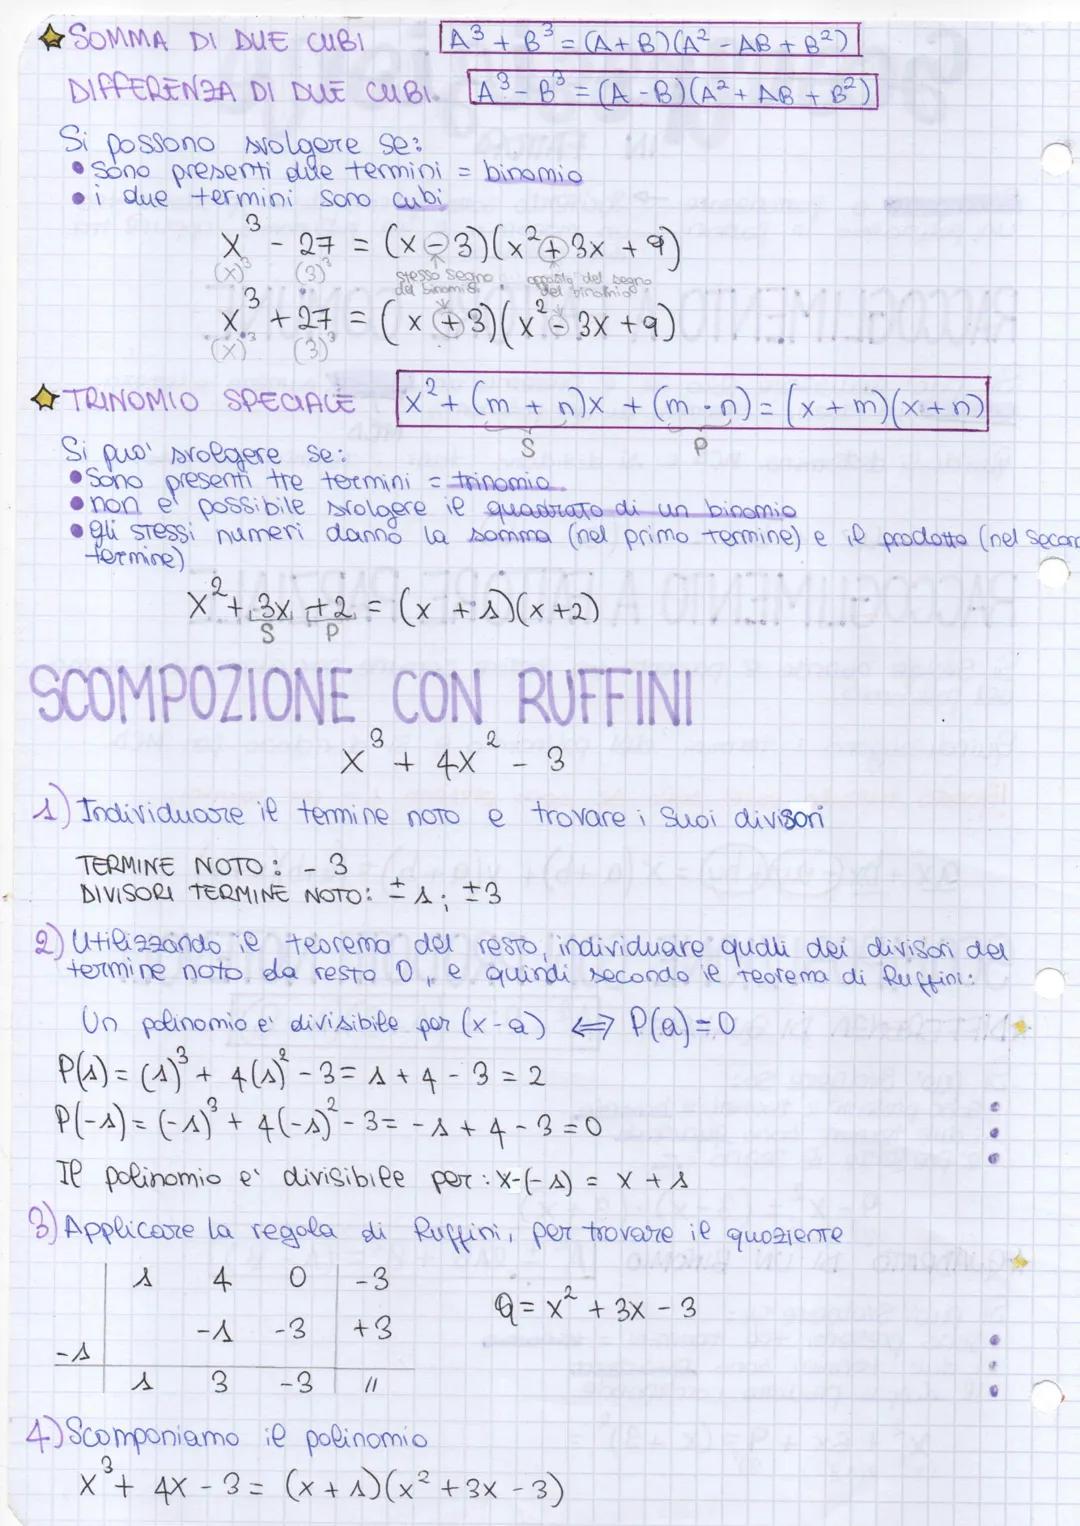 SOMMA DI DUE CUBI A³ + B³ = (A+B)(A² - AB + B²)
DIFFERENZA DI DUE CUBI. A³ - B³ = (A - B)(A² + AB + B²)
Si possono svolgere se:
• Sono presenti due termini = binomio
• i due termini sono cubi
x³ - 27 = (x - 3)(x² + 3x + 9)
(x)³ (3)³ stesso segno del binomio opposto del segno del binomio
x³ + 27 = (x + 3)(x² - 3x + 9)
(x)³ (3)³
TRINOMIO SPECIALE x² + (m + n)x + (m · n) = (x + m)(x + n)
S P
Si puo' svolgere se:
• Sono presenti tre termini = trinomio
• non e' possibile svolgere il quadrato di un binomio
• gli stessi numeri danno la somma (nel primo termine) e il prodotto (nel secon
termine)
x² + 3x + 2 = (x + 1)(x + 2)
S P
SCOMPOZIONE CON RUFFINI
x³ + 4x² - 3
1) Individuare il termine noto e trovare i suoi divisori
TERMINE NOTO: - 3
DIVISORI TERMINE NOTO: ± 1; ±3
2) Utilizzando il teorema del resto, individuare quali dei divisori del
termine noto da resto 0, e quindi secondo il teorema di Ruffini:
Un polinomio e' divisibile per (x - a) ⟺ P(a) = 0
P(1) = (1)³ + 4(1)² - 3 = 1 + 4 - 3 = 2
P(-1) = (-1)³ + 4(-1)² - 3 = -1 + 4 - 3 = 0
Il polinomio e' divisibile per: x-(-1) = x + 1
3) Applicare la regola di Ruffini, per trovare il quoziente
1 4 0 -3
Q = x² + 3x - 3
-1 -3 +3
-1
1 3 -3 //
4) Scomponiamo il polinomio
x³ + 4x - 3 = (x + 1)(x² + 3x - 3)